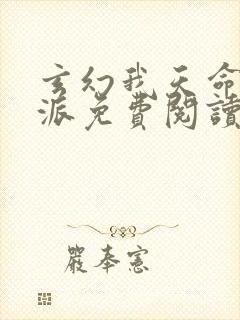 玄幻我天命
派免費閱讀
嚴奉憲